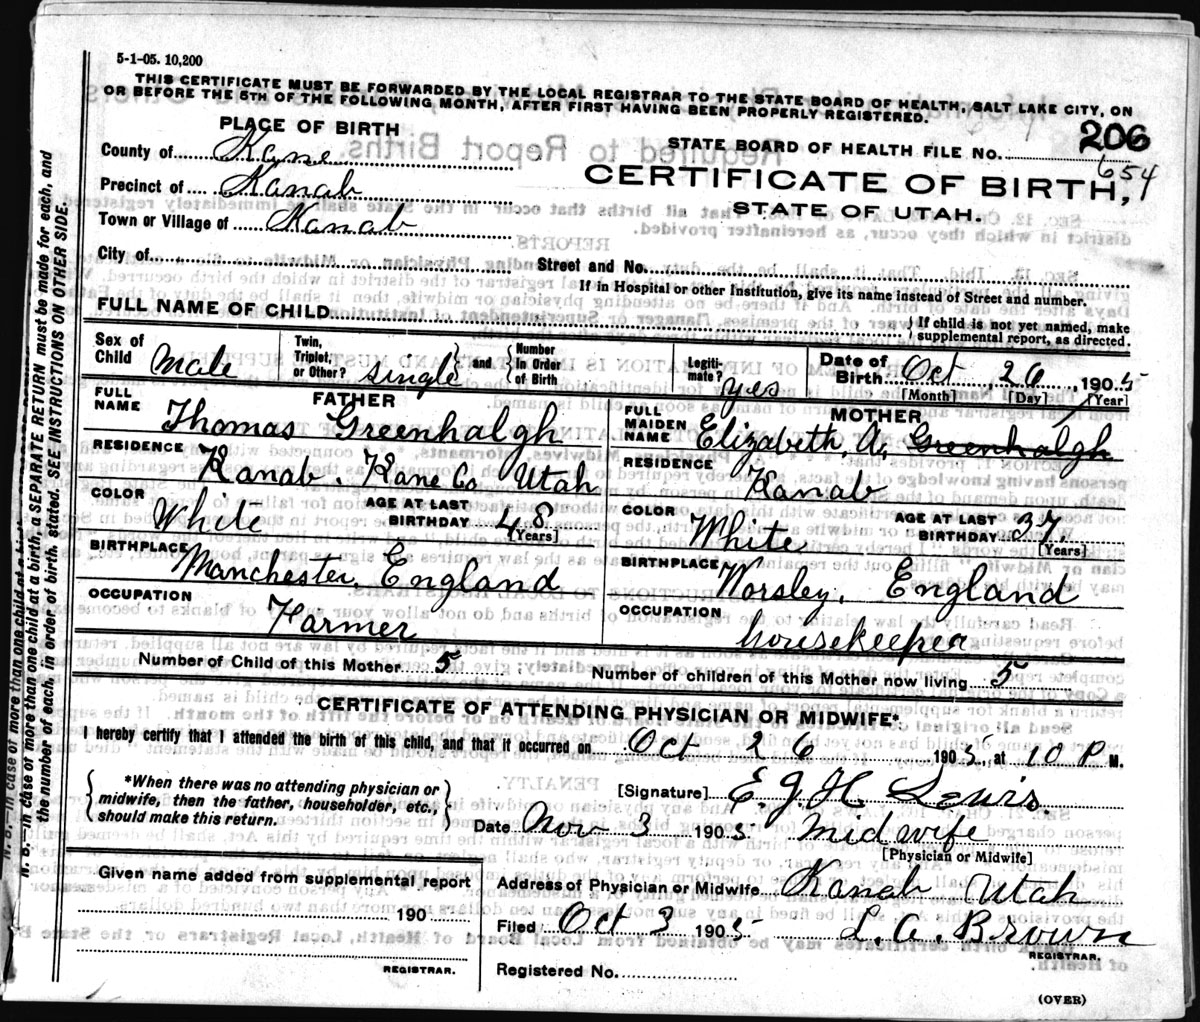 5-1-05. 10,200
THIS CERTIFICATE MUST BE FORWARDED BY THE LOCAL REGISTRAR TO THE STATE BOARD OF HEALTH, SALT LAKE CITY, ON
OR BEFORE THE 5TH OF THE FOLLOWING MONTH, AFTER FIRST HAVING BEEN PROPERLY REGISTERED.
206
654
PLACE OF BIRTH
STATE BOARD OF HEALTH FILE NO.
County of Kane
CERTIFICATE OF BIRTH,
Precinct of Kanab
STATE OF UTAH.
Town or Village of Kanab
City of
Street and No.
If in Hospital or other Institution, give its name instead of Street and number.
FULL NAME OF CHILD
If child is not yet named, make
supplemental report, as directed.
Sex of Child Male
Twin, Triplet, or Other? single and Number in Order of Birth
Legiti- mate? yes
Date of Birth Oct 26, 1905
[Month] [Day] [Year]
FATHER
FULL NAME Thomas Greenhalgh
MOTHER
FULL MAIDEN NAME Elizabeth A. Greenhalgh
RESIDENCE Kanab. Kane Co Utah
RESIDENCE Kanab
COLOR White AGE AT LAST BIRTHDAY 48 [Years]
COLOR White AGE AT LAST BIRTHDAY 37 [Years]
BIRTHPLACE Manchester, England
BIRTHPLACE Worsley, England
OCCUPATION Farmer
OCCUPATION housekeeper
Number of Child of this Mother 5
Number of children of this Mother now living 5
CERTIFICATE OF ATTENDING PHYSICIAN OR MIDWIFE*
I hereby certify that I attended the birth of this child, and that it occurred on Oct 26 1905, at 10 P M.
*When there was no attending physician or
midwife, then the father, householder, etc.,
should make this return.
[Signature] E. J. H Lewis.
Date Nov 3 1905 midwife
[Physician or Midwife]
Given name added from supplemental report
190
REGISTRAR.
Address of Physician or Midwife Kanab Utah
Filed Oct 3 1905 L. C. Brown
REGISTRAR.
Registered No.
(OVER)
N. B.—In case of more than one child at a birth, a SEPARATE RETURN must be made for each, and
the number of each, in order of birth, stated. SEE INSTRUCTIONS ON OTHER SIDE.